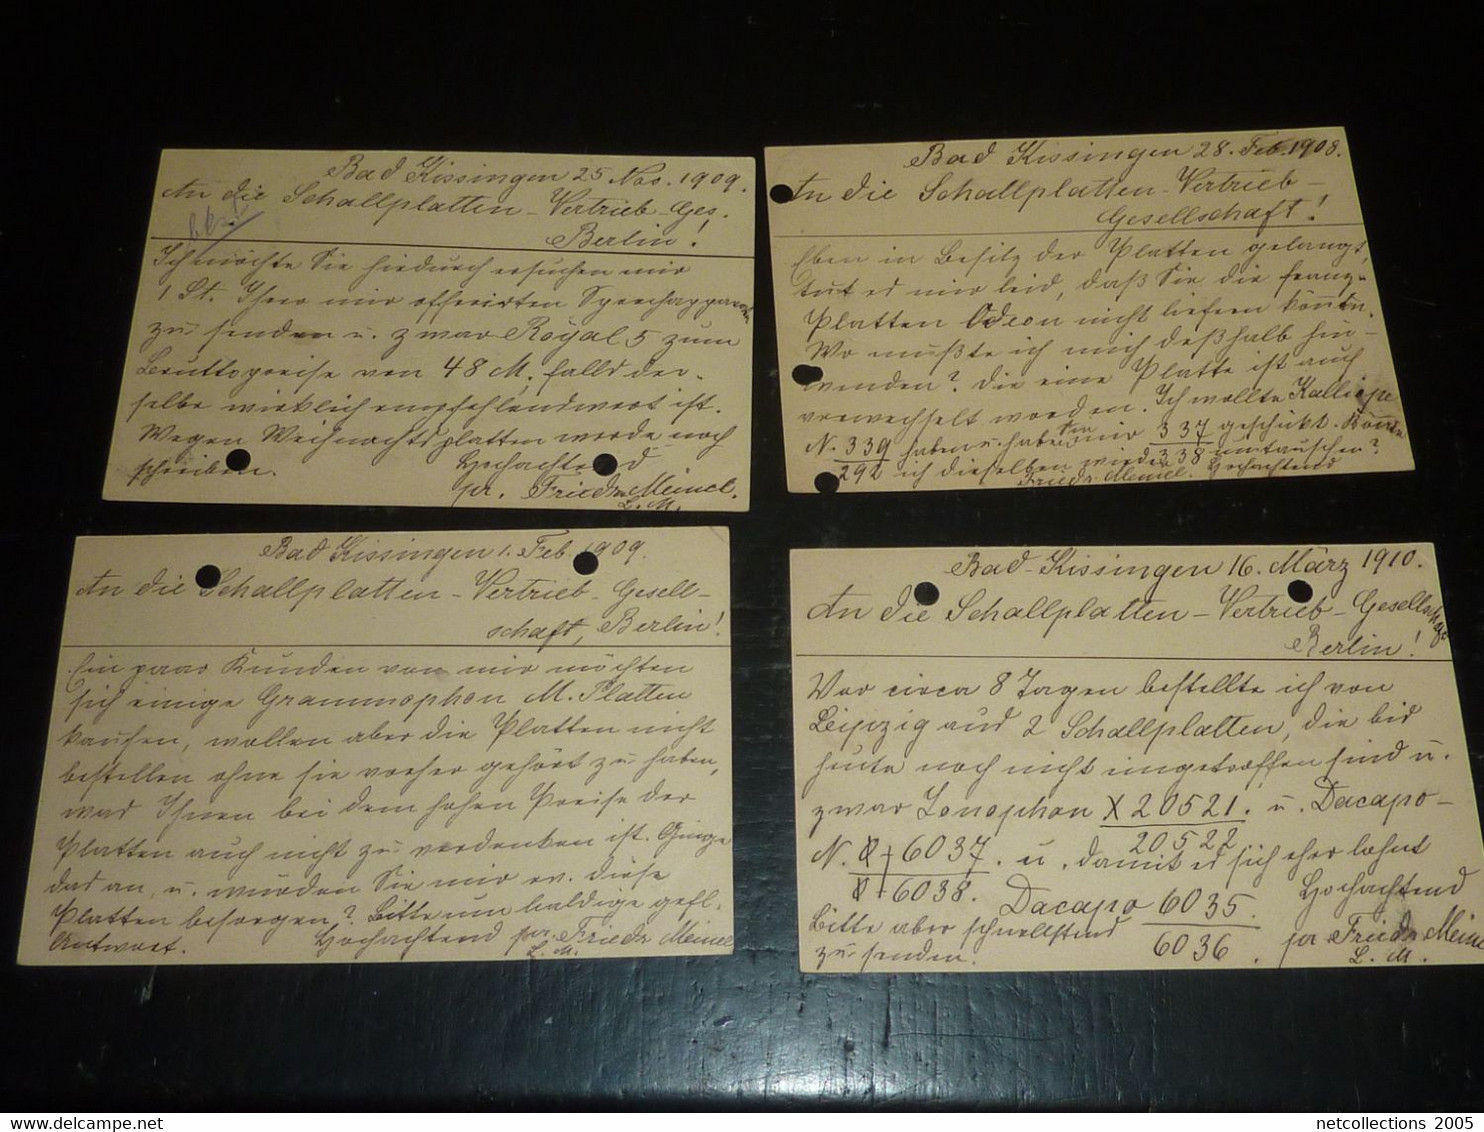 Bad Kissingen 25 Nov. 1909.
An die Schallplatten-Vertrieb-Ges.
Berlin!
Ich möchte Sie hiedurch ersuchen mir
1 St. Ihrer mir offerirten Sprechapparaten
zu senden u. zwar Royal 5 zum
Bruttopreise von 48 M. falls der-
selbe wirklich empfehlendwert ist.
Wegen Weihnachtsplatten werde noch
schreiben. Hochachtend
pr. Friedr. Meinel.
L. M.
Bad Kissingen 28. Feb. 1908.
An die Schallplatten-Vertrieb-
Gesellschaft!
Eben in Besitz der Platten gelangt,
tut es mir leid, daß Sie die franz.
Platten Odeon nicht liefern können.
Wo müßte ich mich deßhalb hin-
wenden? Die eine Platte ist auch
verwechselt worden. Ich wollte Kalliope
N. 339 haben u. haben Sie mir 337 geschickt. Könnte
292 ich dieselben wieder 338 umtauschen?
Friedr. Meinel. Hochachtend
Bad Kissingen 1. Feb. 1909.
An die Schallplatten-Vertrieb-Gesell-
schaft, Berlin!
Ein paar Kunden von mir möchten
sich einige Grammophon M. Platten
kaufen, wollen aber die Platten nicht
bestellen ohne sie vorher gehört zu haben,
was Ihnen bei dem hohen Preise der
Platten auch nicht zu verdenken ist. Ginge
das an, u. würden Sie mir ev. diese
Platten besorgen? Bitte um baldige gefl.
Antwort. Hochachtend pr. Friedr. Meinel
L. M.
Bad-Kissingen 16. März 1910.
An die Schallplatten-Vertrieb-Gesellschaft
Berlin!
Vor circa 8 Tagen bestellte ich von
Leipzig aus 2 Schallplatten, die bis
heute noch nicht eingetroffen sind u.
zwar Zonophon X 20521. u. Dacapo-
20522
N. 6037. u. damit es sich eher lohnt
6038. Dacapo 6035. Hochachtend
Bitte aber schnellstens 6036. pr Friedr. Meinel
zu senden. L. M.
netcollections 2005